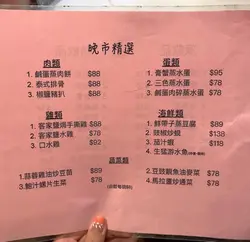 晚市精選
肉類
1. 鹹蛋蒸肉餅 $88
2. 泰式排骨 $88
3. 椒鹽豬扒 $88
蛋類
1. 膏蟹蒸水蛋 $95
2. 三色蒸水蛋 $78
3. 鹹蛋肉碎蒸水蛋 $78
雞類
1. 客家鹽焗手撕雞 $88
2. 客家鹽水雞 $78
3. 口水雞 $92
海鮮類
1. 鮮帶子蒸豆腐 $89
2. 豉椒炒蜆 $138
3. 茄汁蝦 $118
4. 生猛游水魚
蔬菜類
1. 蒜蓉雞油炒豆苗 $89
2. 鮑汁螺片生菜 $78
3. 豆豉鯪魚油麥菜 $78
4. 馬拉盞炒通菜 $78